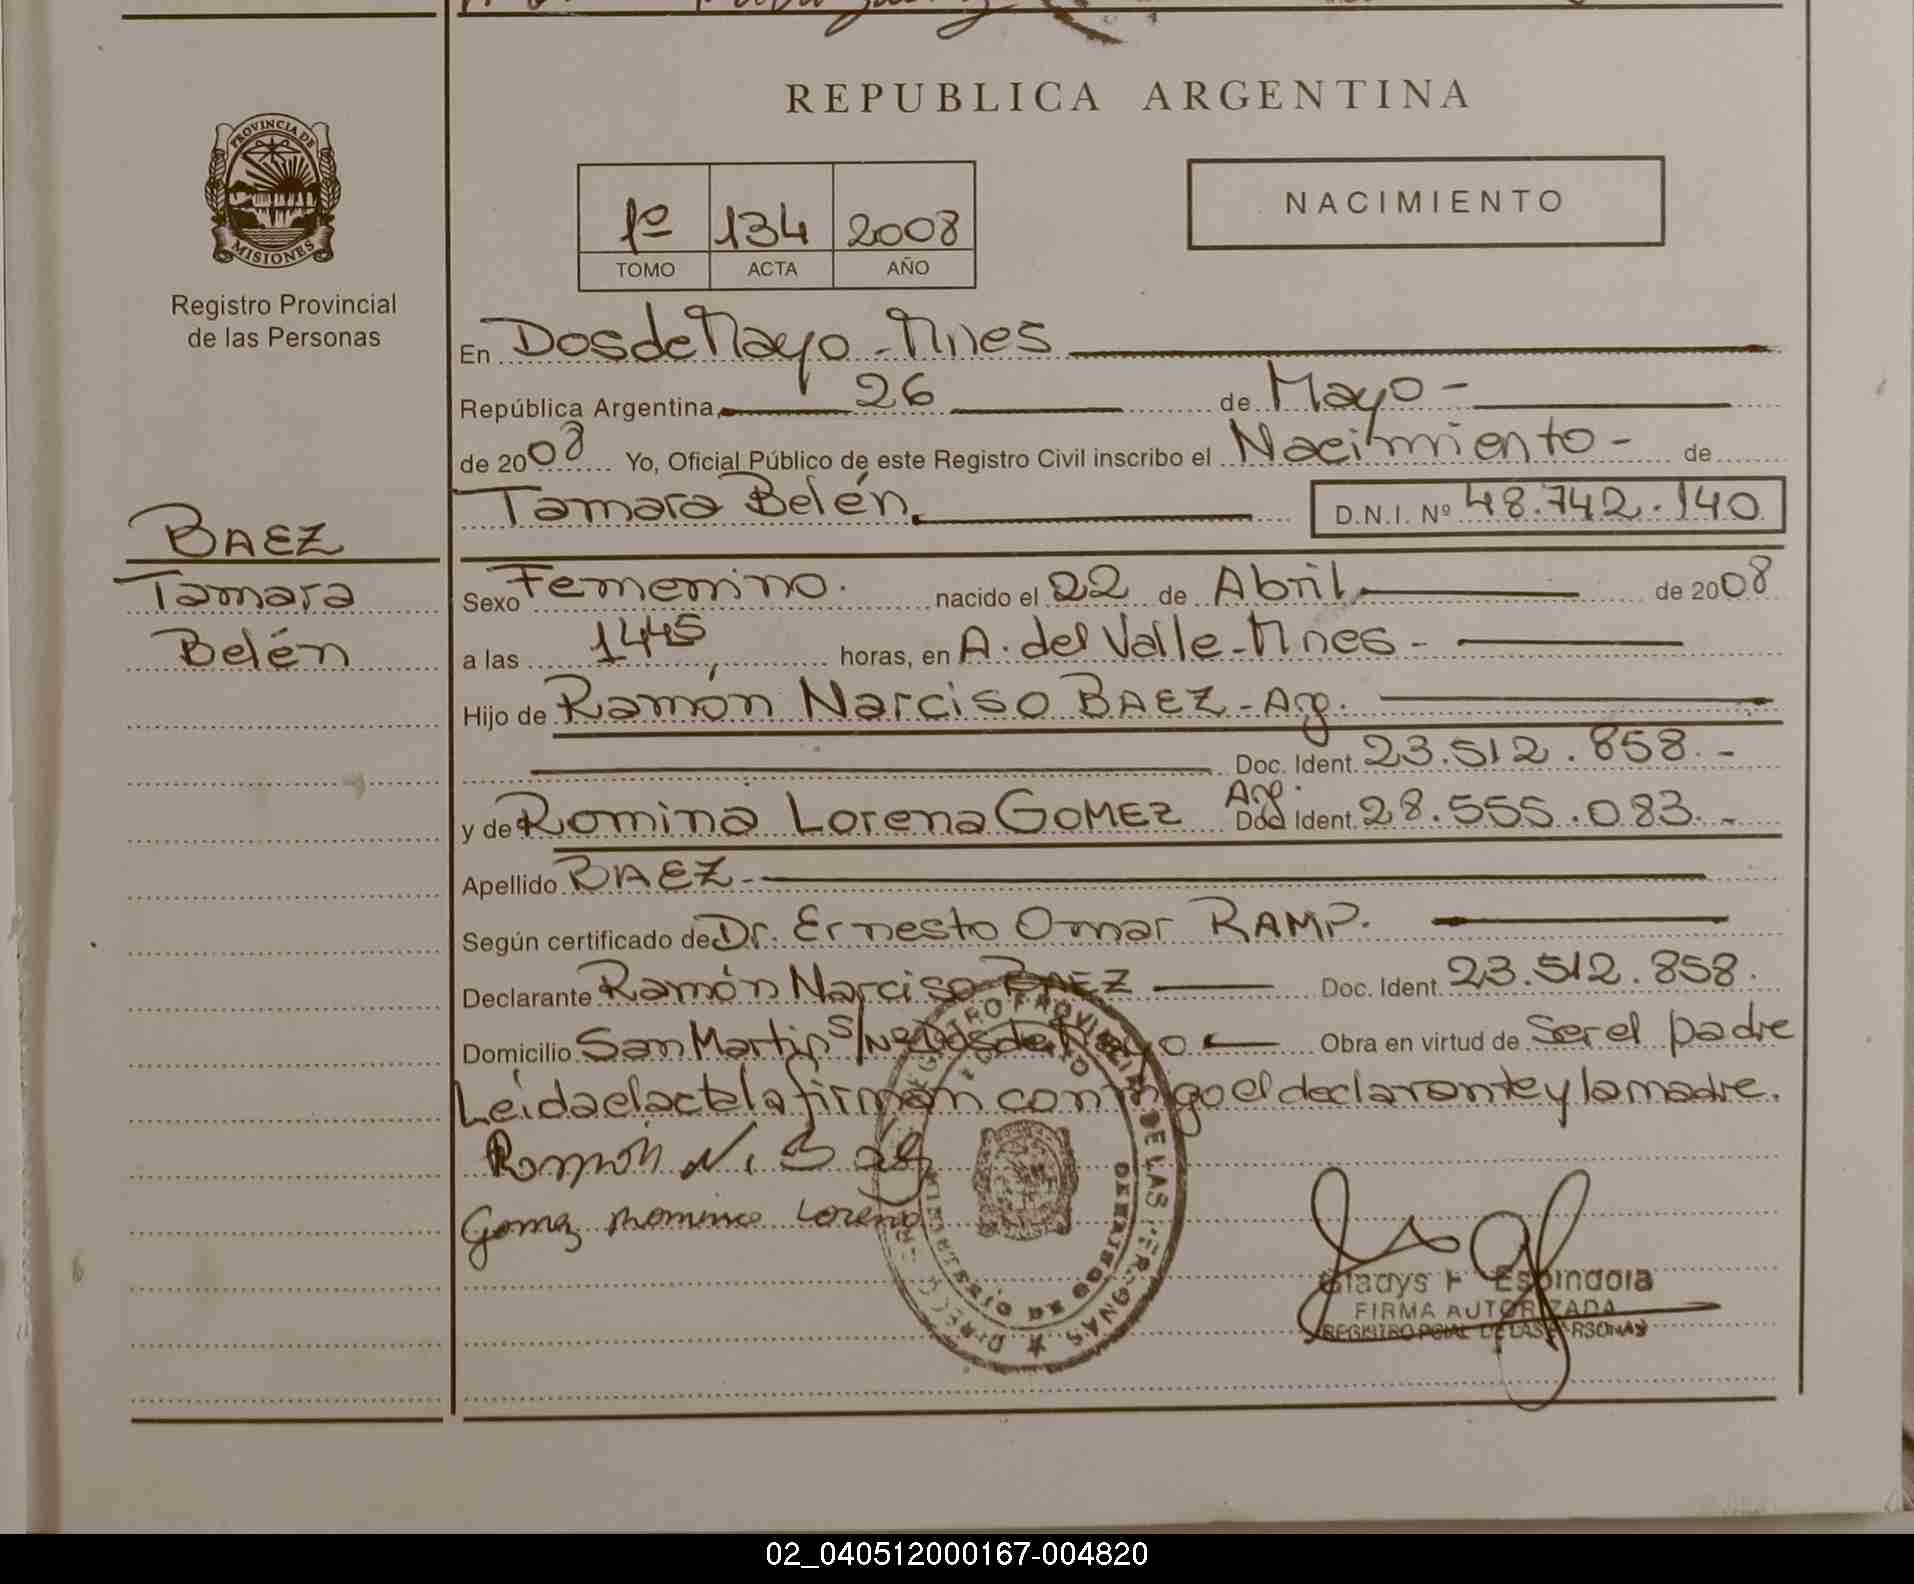 REPUBLICA ARGENTINA
PROVINCIA DE
MISIONES
Registro Provincial
de las Personas
1º 134 2008
TOMO ACTA AÑO
NACIMIENTO
En Dos de Mayo - Mnes
República Argentina, 26 de Mayo -
de 2008 Yo, Oficial Público de este Registro Civil inscribo el Nacimiento - de
Tamara Belén D.N.I. Nº 48.742.140
BAEZ
Tamara
Belén
Sexo Femenino. nacido el 22 de Abril de 2008
a las 1445, horas, en A. del Valle - Mnes -
Hijo de Ramón Narciso BAEZ - Arg.
Doc. Ident. 23.512.858. -
y de Romina Lorena GOMEZ Arg. Doc Ident. 28.555.083. -
Apellido BAEZ -
Según certificado de Dr. Ernesto Omar RAMP.
Declarante Ramón Narciso BAEZ Doc. Ident. 23.512.858.
Domicilio San Martin S/Nº Dos de Mayo Obra en virtud de Ser el padre
Leida el acta la firman conmigo el declarante y la madre.
Ramón N. Baez
Gomez Romina Lorena
Gladys F Espindola
FIRMA AUTORIZADA
REGISTRO PCIAL DE LAS PERSONAS
02_040512000167-004820